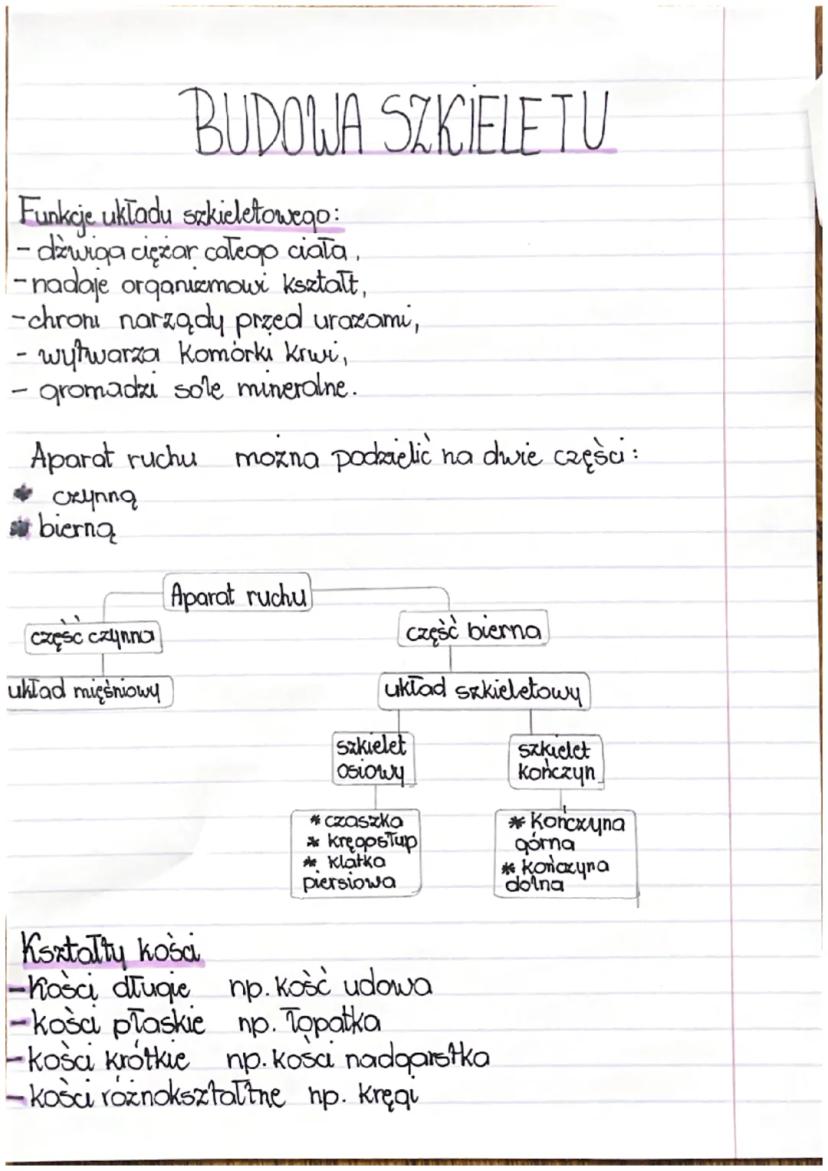 BUDOWA SZKIELETU
Funkcje układu szkieletowego:
- dźwiga ciężar całego ciała,
- nadaje organizmowi kształt,
- chroni narządy przed urazami,
- wytwarza komórki krwi,
- gromadzi sole mineralne.
Aparat ruchu można podzielić na dwie części:
* czynną
* bierną
Aparat ruchu
część czynna
część bierna
układ mięśniowy
układ szkieletowy
szkielet
osiowy
szkielet
kończyn
* czaszka
* kręgosłup
* klatka
piersiowa
* kończyna
górna
* kończyna
dolna
Kształty kości
- kości długie np. kość udowa
- kości płaskie np. łopatka
- kości krótkie np. kości nadgarstka
- kości różnokształtne np. kręgi